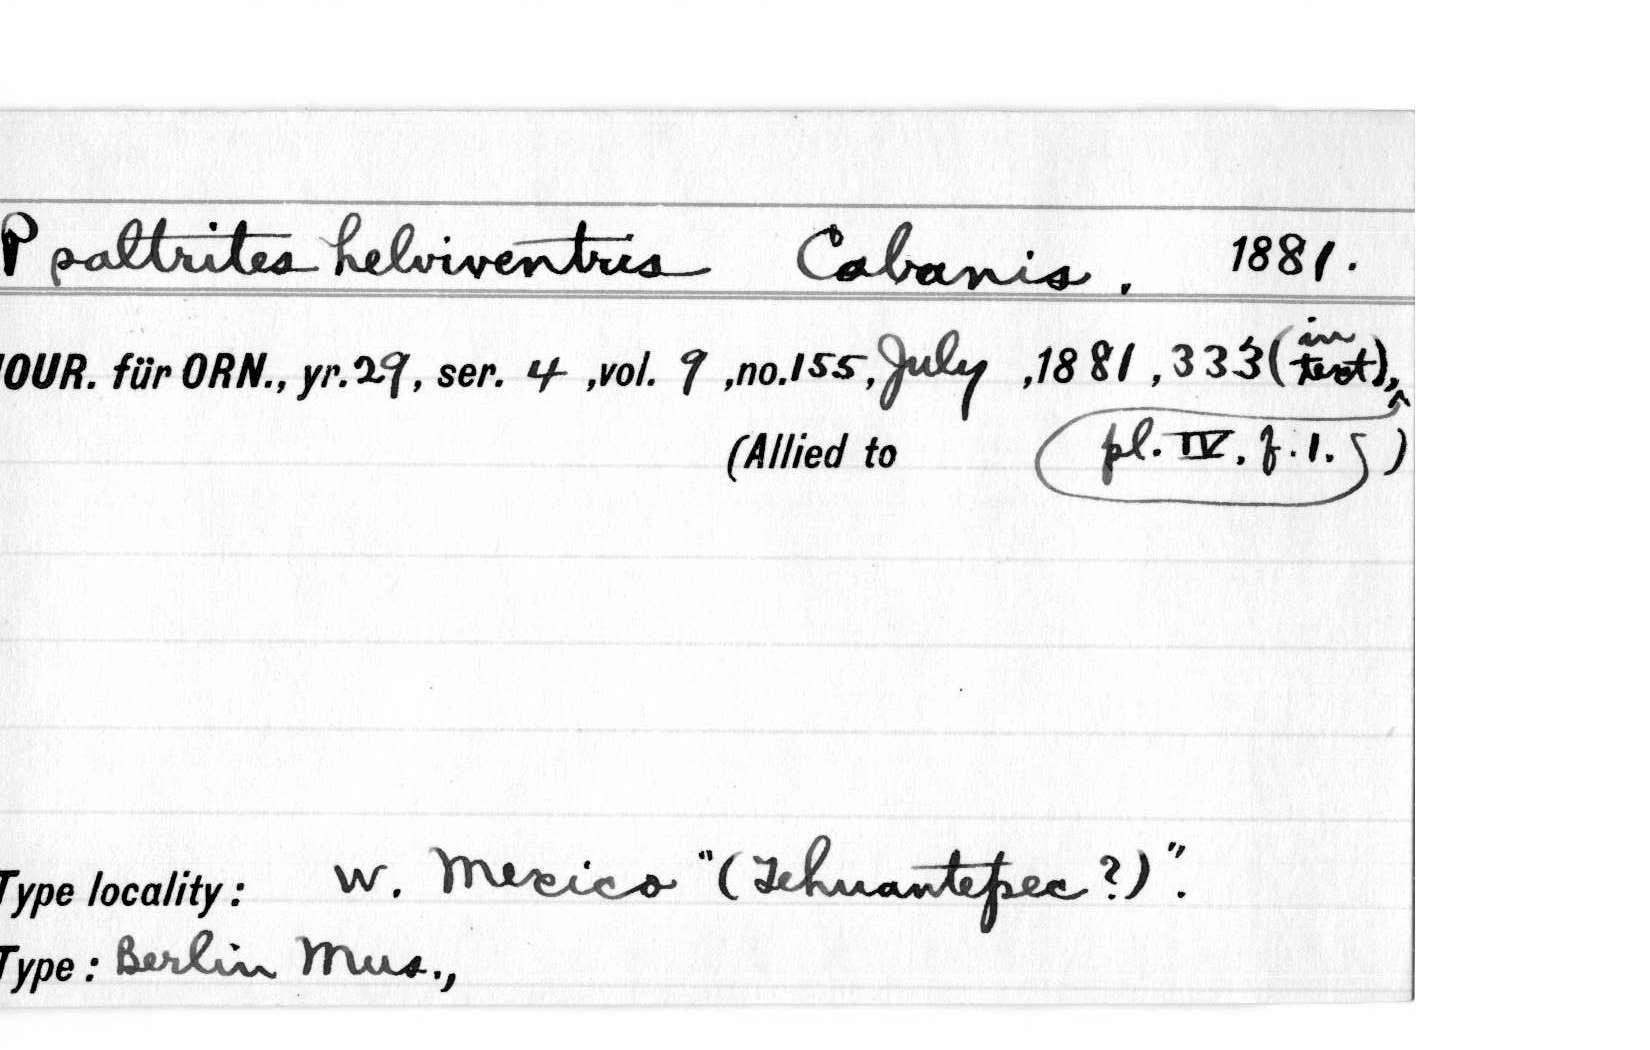 P psaltrites helviventris Cabanis. 1881.
JOUR. für ORN., yr. 29, ser. 4, vol. 9, no. 155, July, 1881, 333 (in text),
(Allied to pl. IV, f. 1.)
Type locality: W. Mexico "(Tehuantepec?)".
Type: Berlin Mus.,